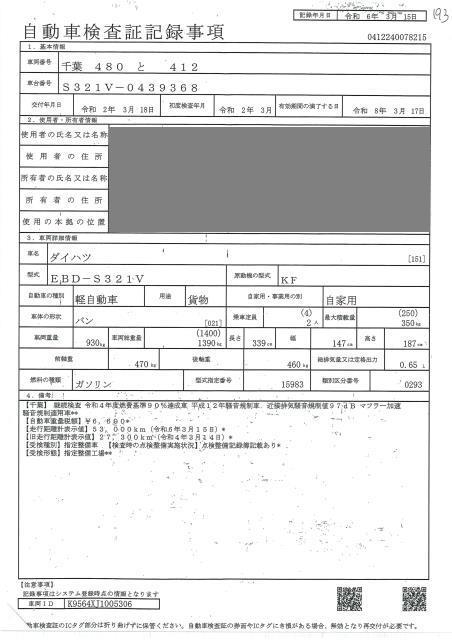 記録年月日 令和 6年 3月 15日
193
自動車検査証記録事項
0412240078215
1．基本情報
車両番号 千葉 480 と 412
車台番号 S321V－0439368
交付年月日 令和 2年 3月 18日 初度検査年月 令和 2年 3月 有効期間の満了する日 令和 8年 3月 17日
2．使用者・所有者情報
使用者の氏名又は名称
使用者の住所
所有者の氏名又は名称
所有者の住所
使用の本拠の位置
3．車両詳細情報
車名 ダイハツ [151]
型式 EBD－S321V 原動機の型式 KF
自動車の種別 軽自動車 用途 貨物 自家用・事業用の別 自家用
車体の形状 バン [021] 乗車定員 (4) 2人 最大積載量 (250) 350kg
車両重量 930kg 車両総重量 (1400) 1390kg 長さ 339cm 幅 147cm 高さ 187cm
前軸重 470kg 後軸重 460kg 総排気量又は定格出力 0.65 L
燃料の種類 ガソリン 型式指定番号 15983 類別区分番号 0293
4．備考
【千葉】 継続検査 令和4年度燃費基準90％達成車 平成12年騒音規制車、近接排気騒音規制値97dB マフラー加速
騒音規制適用車**
【自動車重量税額】￥6,600*
【走行距離計表示値】53,000km（令和6年3月15日）*
【旧走行距離計表示値】27,300km（令和4年3月14日）*
【受検種別】指定整備車 【検査時の点検整備実施状況】点検整備記録簿記載あり*
【受検形態】指定整備工場**
【注意事項】
記録事項はシステム登録時点の情報となります
車両ID K9564XJ1005306
動車検査証のICタグ部分は折り曲げずに保管ください。自動車検査証の券面やICタグに き損がある場合、無効となり再交付が必要です。